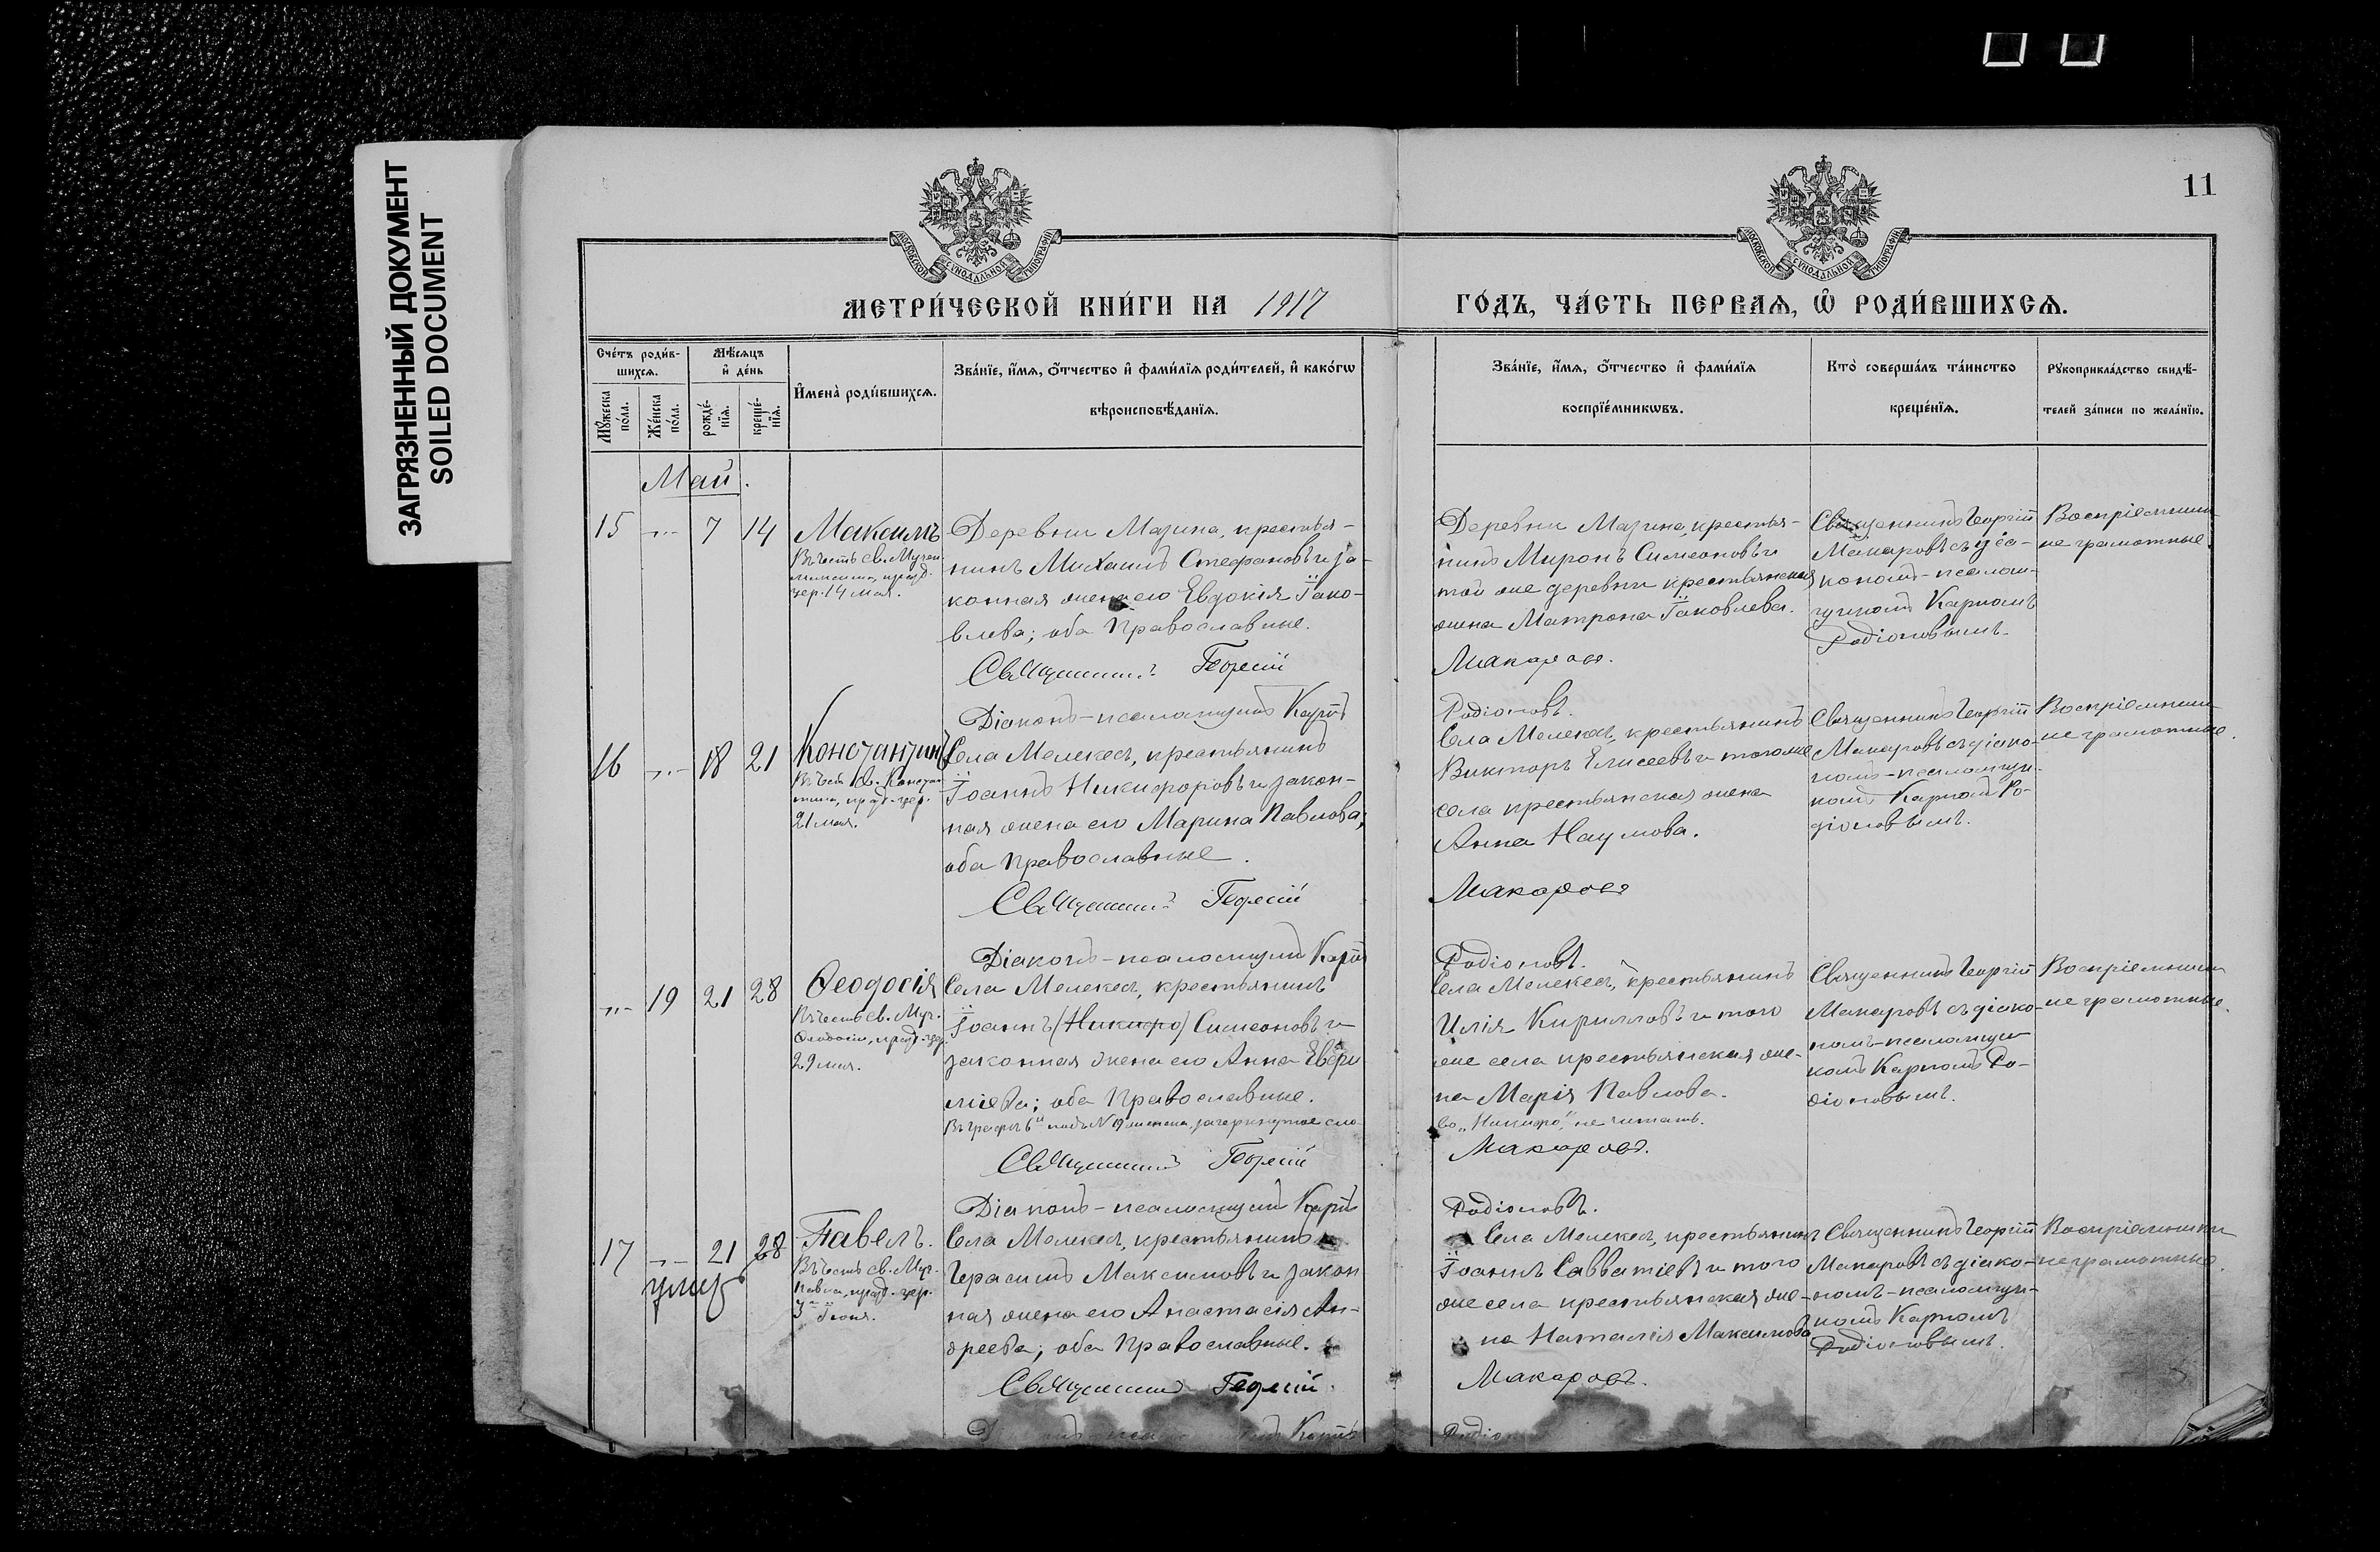 ЗАГРЯЗНЕННЫЙ ДОКУМЕНТ
SOILED DOCUMENT
11
МОСКОВСКОЙ СѴНОДАЛЬНОЙ ТИПОГРАФІИ
МОСКОВСКОЙ СѴНОДАЛЬНОЙ ТИПОГРАФІИ
МЕТРИ́ЧЕСКОЙ КНИ́ГИ НА 1917
ГО́ДЪ, ЧА́СТЬ ПЕРВАЯ, Ѽ РОДИ́ВШИХСѦ.
Сче́тъ роди́в-
шихсѧ.
Мꙋ́жеска по́ла.
Же́нска по́ла.
Мѣ́сѧцъ
и҆ де́нь
рожде́-
нїѧ.
креще́-
нїѧ.
И҆мена̀ роди́вшихсѧ.
Зва́нїе, и҆́мѧ, ѻ҆́тчество и҆ фами́лїѧ роди́телей, и҆ како́гѡ
вѣроисповѣ́данїѧ.
Зва́нїе, и҆́мѧ, ѻ҆́тчество и҆ фами́лїѧ
воспрїе́мникѡвъ.
Кто̀ соверша́лъ та́инство
креще́нїѧ.
Рꙋкоприкла́дство свидѣ́-
телей за́писи по жела́нїю.
Май.
15 -"- 7 14
Максимъ
Въ честь св. Мучен.
Максима, празд.
цер. 14 мая.
Деревни Мазина, крестья-
нинъ Михаилъ Стефановъ и за-
конная жена его Евдокія Іако-
влева; оба Православные.
Священникъ Георгій
Діаконъ-псаломщикъ Карпъ
Деревни Мазина, крестья-
нинъ Миронъ Симеоновъ и
той же деревни крестьянская
жена Матрона Іаковлева.
Макаровъ.
Родіоновъ.
Священникъ Георгій
Макаровъ съ діа-
кономъ-псалом-
щикомъ Карпомъ
Родіоновымъ.
Воспріемники
не грамотные.
16 -"- 18 21
Константинъ
Въ честь св. Констан-
тина, празд. цер.
21 мая.
Села Мелекес, крестьянинъ
Іоаннъ Никифоровъ и закон-
ная жена его Марина Павлова;
оба Православные.
Священникъ Георгій
Діаконъ-псаломщикъ Карпъ
Села Мелекес, крестьянинъ
Викторъ Елисеевъ и того же
села крестьянская жена
Анна Наумова.
Макаровъ
Родіоновъ.
Священникъ Георгій
Макаровъ съ діако-
номъ-псаломщи-
комъ Карпомъ Ро-
діоновымъ.
Воспріемники
не грамотные.
-"- 19 21 28
Ѳеодосія
Въ честь св. Муч.
Ѳеодосіи, празд. цер.
29 мая.
Села Мелекес, крестьянинъ
Іоаннъ (Никифо) Симеоновъ и
законная жена его Анна Евѳи
міева; оба Православные.
Въ графѣ 6й подъ N 19 женска, зачеркнутое сло
Священникъ Георгій
Діаконъ-псаломщикъ Карпъ
Села Мелекес, крестьянинъ
Илія Кирилловъ и того
же села крестьянская же-
на Марія Павлова.
во „Никифо", не читать.
Макаровъ.
Родіоновъ.
Священникъ Георгій
Макаровъ съ діако-
номъ-псаломщи
комъ Карпомъ Ро-
діоновымъ.
Воспріемники
не грамотные.
17 -"- 21 28
умеръ
Павелъ.
Въ честь св. Муч.
Павла, празд. цер.
3 Іюня.
Села Мелекес, крестьянинъ
Герасимъ Максимовъ и закон
ная жена его Анастасія Ан-
дреева; оба Православные.
Священникъ Георгій.
Карпъ
Села Мелекес, крестьянинъ
Іоаннъ Савватіевъ и того
же села крестьянская же-
на Наталія Максимова
Макаровъ.
Священникъ Георгій
Макаровъ съ діако-
номъ-псаломщи-
комъ Карпомъ
Родіоновымъ.
Воспріемники
не грамотные.